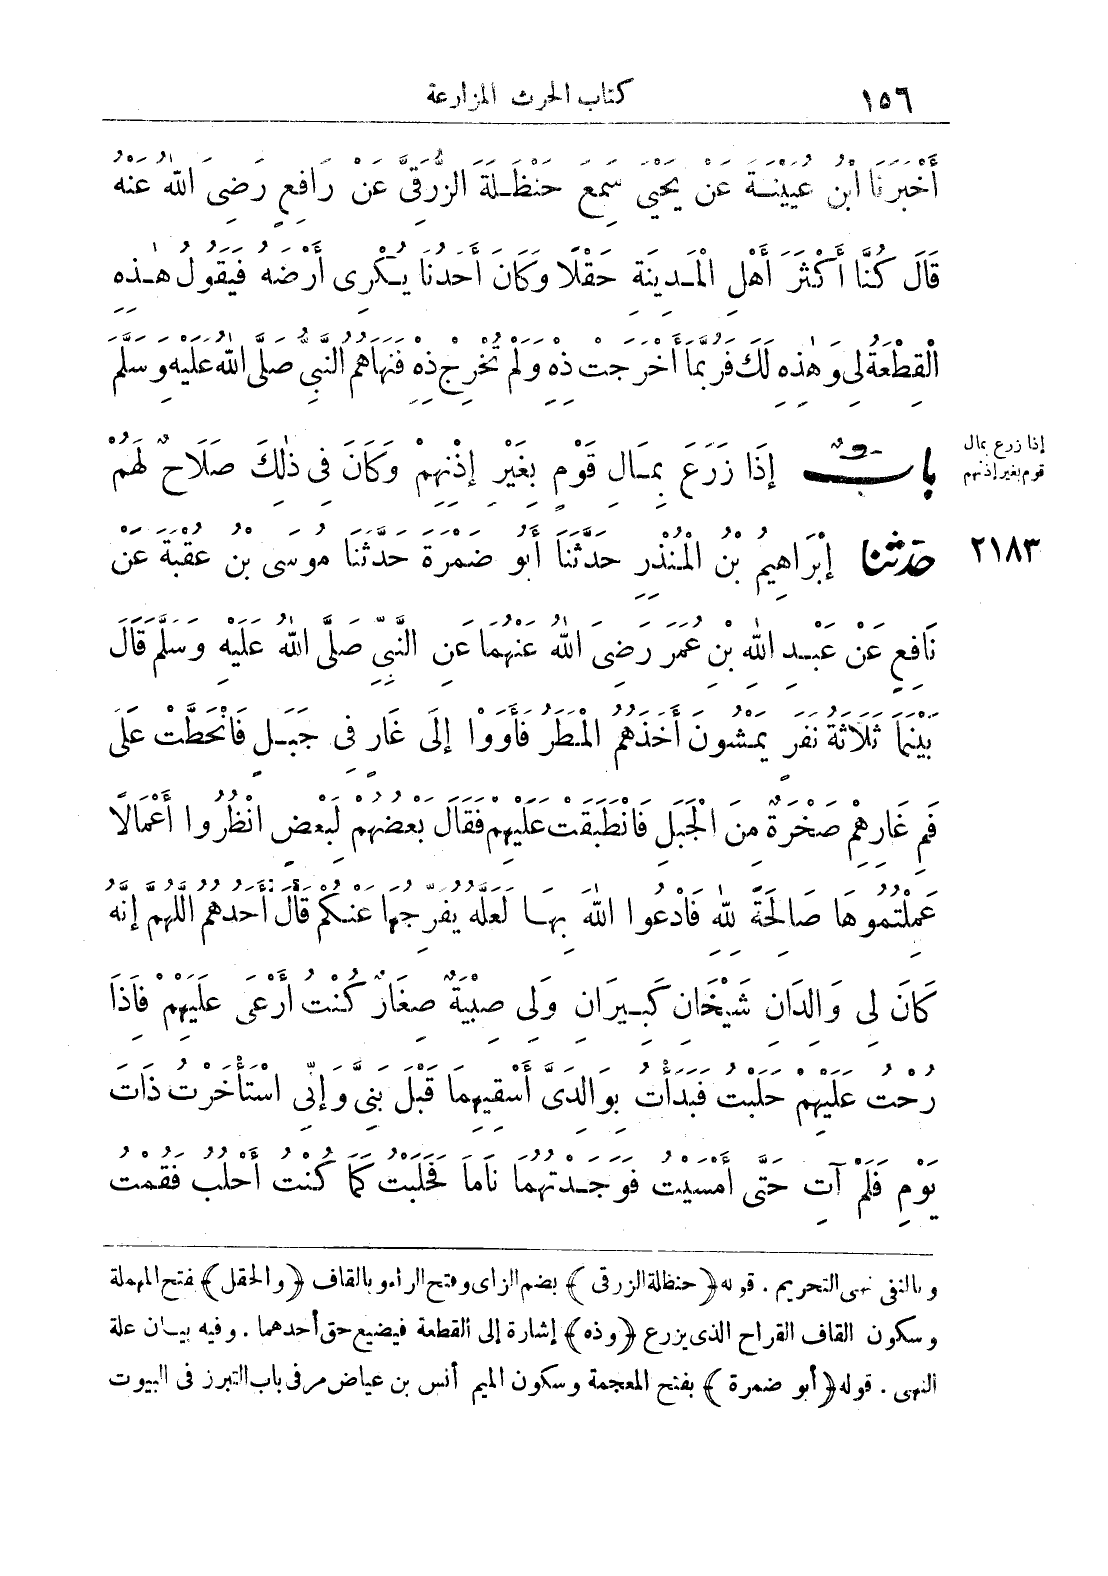 ١٥٦ كتاب الحرث المزارعة
أَخْبَرَنَا ابْنُ عُيَيْنَةَ عَنْ يَحْيَى سَمِعَ حَنْظَلَةَ الزُّرَقِىَّ عَنْ رَافِعٍ رَضِىَ اللهُ عَنْهُ
قَالَ كُنَّا أَكْثَرَ أَهْلِ الْمَدِينَةِ حَقْلًا وَكَانَ أَحَدُنَا يُكْرِى أَرْضَهُ فَيَقُولُ هٰذِهِ
الْقِطْعَةُ لِى وَهٰذِهِ لَكَ فَرُبَّمَا أَخْرَجَتْ ذِهِ وَلَمْ تُخْرِجْ ذِهْ فَنَهَاهُمُ النَّبِىُّ صَلَّى اللهُ عَلَيْهِ وَسَلَّمَ
بابٌ إِذَا زَرَعَ بِمَالِ قَوْمٍ بِغَيْرِ إِذْنِهِمْ وَكَانَ فِى ذٰلِكَ صَلَاحٌ لَهُمْ
إذا زرع بمال
قوم بغير إذنهم
٢١٨٣ حَدَّثَنَا إِبْرَاهِيمُ بْنُ الْمُنْذِرِ حَدَّثَنَا أَبُو ضَمْرَةَ حَدَّثَنَا مُوسَى بْنُ عُقْبَةَ عَنْ
نَافِعٍ عَنْ عَبْدِ اللهِ بْنِ عُمَرَ رَضِىَ اللهُ عَنْهُمَا عَنِ النَّبِىِّ صَلَّى اللهُ عَلَيْهِ وَسَلَّمَ قَالَ
بَيْنَمَا ثَلَاثَةُ نَفَرٍ يَمْشُونَ أَخَذَهُمُ الْمَطَرُ فَأَوَوْا إِلَى غَارٍ فِى جَبَلٍ فَانْحَطَّتْ عَلَى
فَمِ غَارِهِمْ صَخْرَةٌ مِنَ الْجَبَلِ فَانْطَبَقَتْ عَلَيْهِمْ فَقَالَ بَعْضُهُمْ لِبَعْضٍ انْظُرُوا أَعْمَالًا
عَمِلْتُمُوهَا صَالِحَةً لِلّٰهِ فَادْعُوا اللهَ بِهَا لَعَلَّهُ يُفَرِّجُهَا عَنْكُمْ قَالَ أَحَدُهُمْ اللّٰهُمَّ إِنَّهُ
كَانَ لِى وَالِدَانِ شَيْخَانِ كَبِيرَانِ وَلِى صِبْيَةٌ صِغَارٌ كُنْتُ أَرْعَى عَلَيْهِمْ فَإِذَا
رُحْتُ عَلَيْهِمْ حَلَبْتُ فَبَدَأْتُ بِوَالِدَىَّ أَسْقِيهِمَا قَبْلَ بَنِىَّ وَإِنِّى اسْتَأْخَرْتُ ذَاتَ
يَوْمٍ فَلَمْ آتِ حَتَّى أَمْسَيْتُ فَوَجَدْتُهُمَا نَامَا فَحَلَبْتُ كَمَا كُنْتُ أَحْلُبُ فَقُمْتُ
وبالنفى نهى التحريم . قوله ﴿حنظلة الزرقى﴾ بضم الزاى وفتح الراء وبالقاف ﴿والحقل﴾ بفتح المهملة
وسكون القاف القراح الذى يزرع ﴿وذه﴾ إشارة إلى القطعة فيضيع حق أحدهما . وفيه بيان علة
النهى . قوله ﴿أبو ضمرة﴾ بفتح المعجمة وسكون الميم أنس بن عياض مر فى باب التبرز فى البيوت